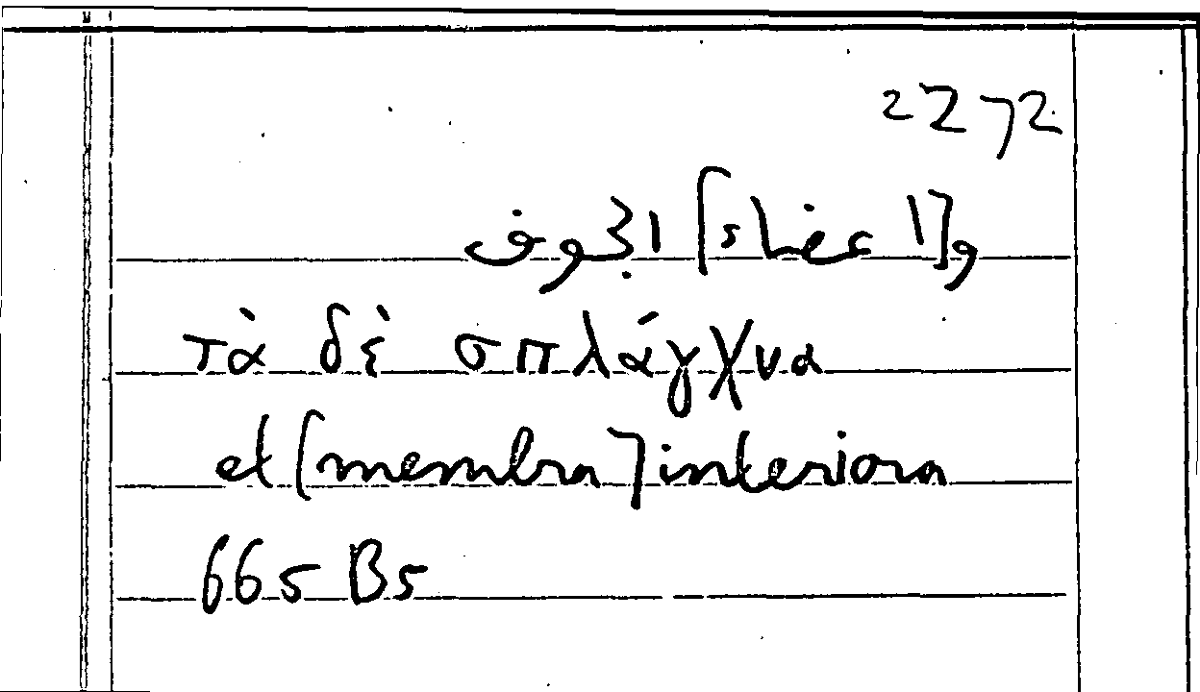 2272
و[اعضاء] الجوف
τὰ δὲ σπλάγχνα
et [membra] interiora
665 B5